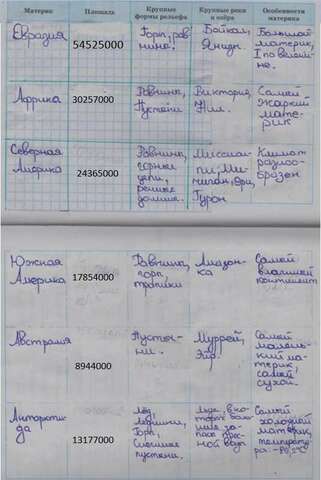 Материк
Площадь
Крупные
формы рельефа
Крупные реки
и озёра
Особенности
материка
Евразия
54525000
Горы, рав
нины.
Байкал,
Янцзы.
Большой
материк,
Африка
30257000
Равнины,
Пустыни
Виктория,
Нил.
Самый
жаркий
мате-
рик
Северная
Америка
24365000
Равнины,
горные
цепи,
речные
долины.
Миссиси-
пи, Ми-
чиган,
Гурон
Климат
разно-
образен
Южная
Америка
17854000
Равнины,
горы,
тропики
Амазон-
ка
Самый
влажный
континент
Австралия
8944000
Пусты-
ни.
Муррей,
Эйр.
Самый
малень-
кий ма-
терик
самый
сухой.
Антаркти-
да
13177000
Лёд,
Ледники,
Горы,
Снежные
пустыни.
Льды, в ко-
торых
за-
пас прес-
ной воды
Самый
холодный
материк,